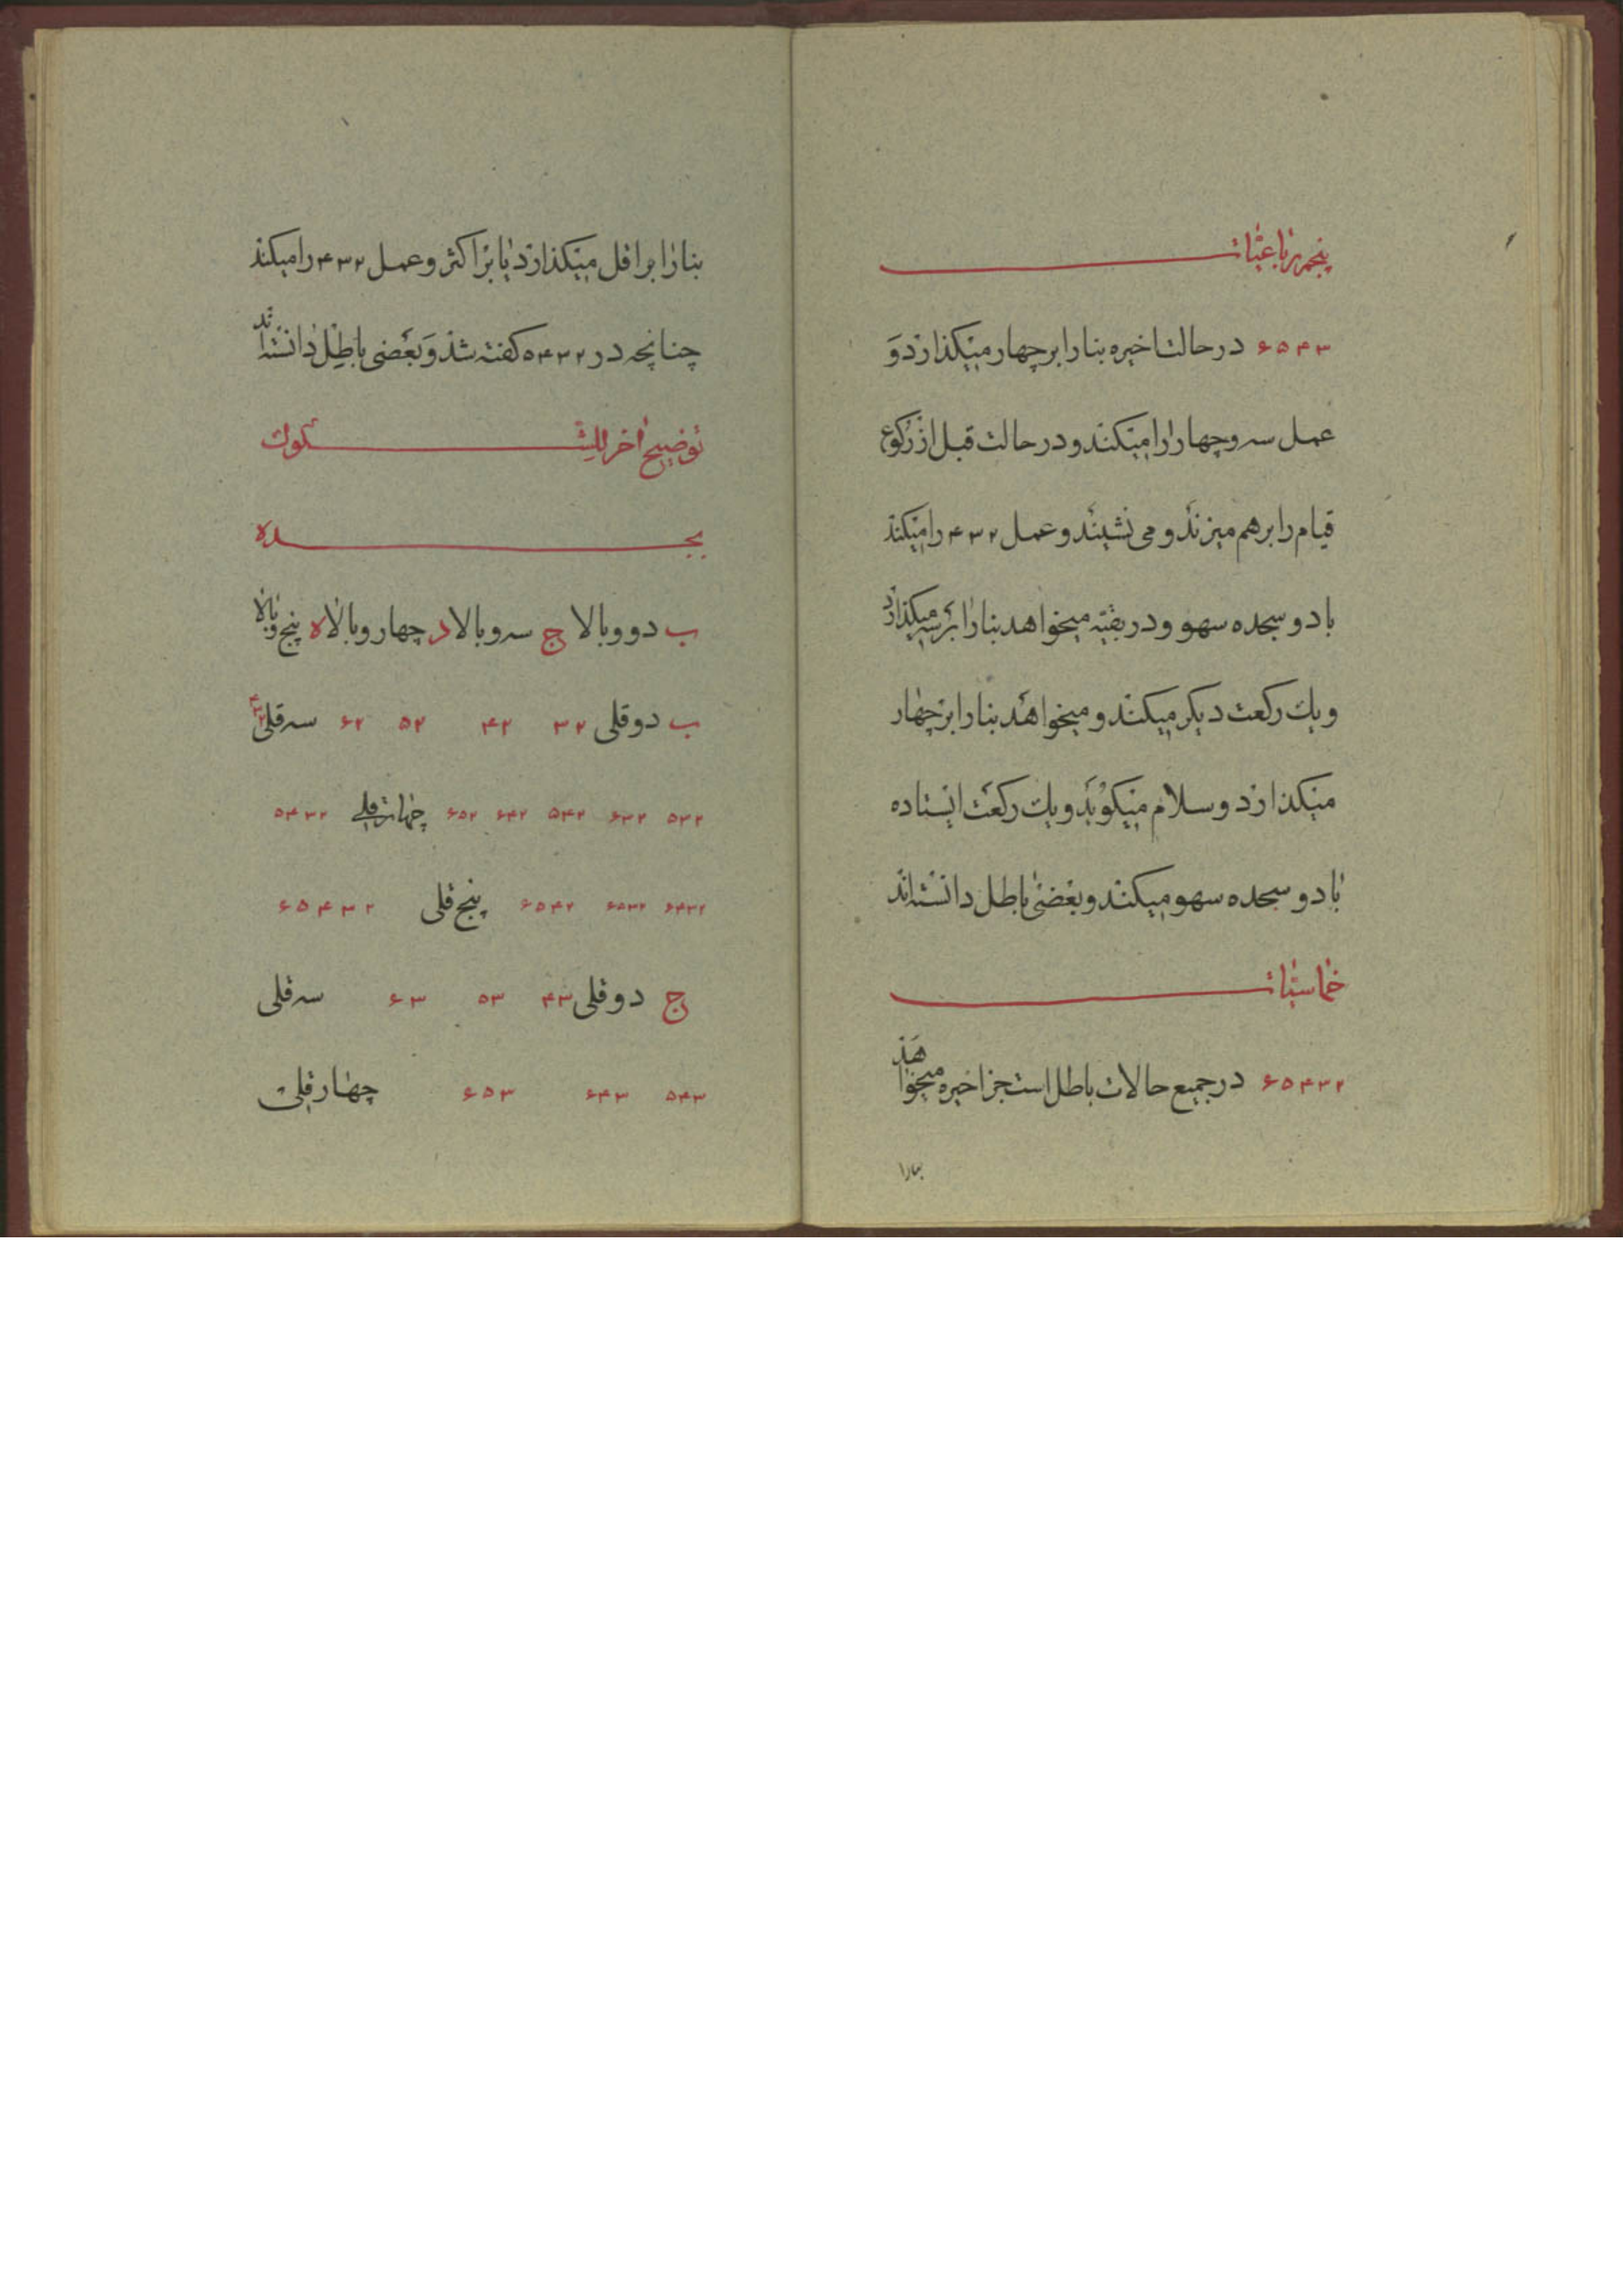 پنجم رباعیات
۶۵۴۳ در حالت اخیره بنا را بر چهار میکذارد و
عمل سه و چهار را میکند و در حالت قبل از رکوع
قیام را بر هم میزند و می نشیند و عمل ۴۳۲ را میکند
با دو سجده سهو و در بقیه میخواهد بنا را بر سه میکذارد
و یك رکعت دیکر میکند و میخواهد بنا را بر چهار
میکذارد و سلام میکوید و یك رکعت ایستاده
با دو سجده سهو میکند و بعضی باطل دانسته اند
خماسیات
۶۵۴۳۲ در جمیع حالات باطل است جز اخیره میخواهد
بنا را
بنا را بر اقل میکذارد یا بر اکثر و عمل ۴۳۲ را میکند
چنانچه در ۵۴۳۲ کفته شد و بعضی باطل دانسته اند
توضیح اخر للشکوك
بجده
ب دو و بالا ج سه و بالا د چهار و بالا ه پنج و بالا
ب دوقلی ۳۲ ۴۲ ۵۲ ۶۲ سه قلی ۴۳۲
۵۳۲ ۶۳۲ ۵۴۲ ۶۴۲ ۶۵۲ چهارقلی ۵۴۳۲
۶۴۳۲ ۶۵۳۲ ۶۵۴۲ پنج قلی ۶۵۴۳۲
ج دوقلی ۴۳ ۵۳ ۶۳ سه قلی
۵۴۳ ۶۴۳ ۶۵۳ چهارقلی